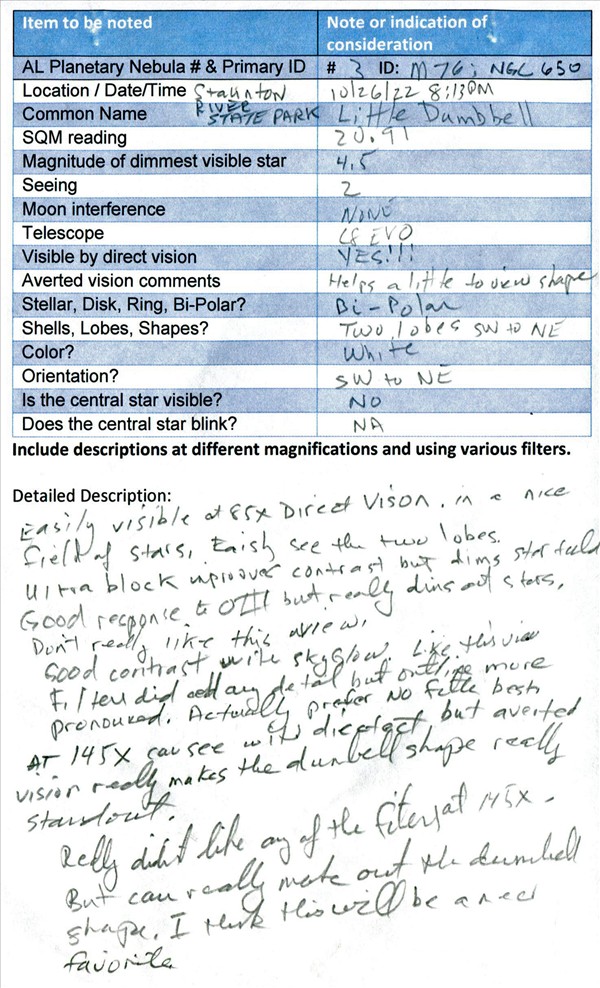 Item to be noted Note or indication of consideration
AL Planetary Nebula # & Primary ID # 3 ID: M76; NGC 650
Location / Date/Time Staunton River State Park 10/26/22 8:13PM
Common Name Little Dumbbell
SQM reading 20.91
Magnitude of dimmest visible star 4.5
Seeing 2
Moon interference NONE
Telescope C8 EVO
Visible by direct vision YES!!!
Averted vision comments Helps a little to view shape
Stellar, Disk, Ring, Bi-Polar? Bi-Polar
Shells, Lobes, Shapes? Two lobes SW to NE
Color? White
Orientation? SW to NE
Is the central star visible? NO
Does the central star blink? NA
Include descriptions at different magnifications and using various filters.
Detailed Description:
Easily visible at 85x Direct Vison. in a nice
field of stars, see the two lobes.
Ultra block contrast but dims star field
Good response to OIII but really dims out stars.
Don't really like this view.
Good contrast with skyglow. Like this view
Filter did add any detail but outline more
pronounced. Actually prefer NO best
AT 145X can see with direct but averted
vision really makes the dumbell shape really
standout.
Really didn't like any of the filters at 145X.
But can really make out the dumbell
shape. I think this will be a new
favorite